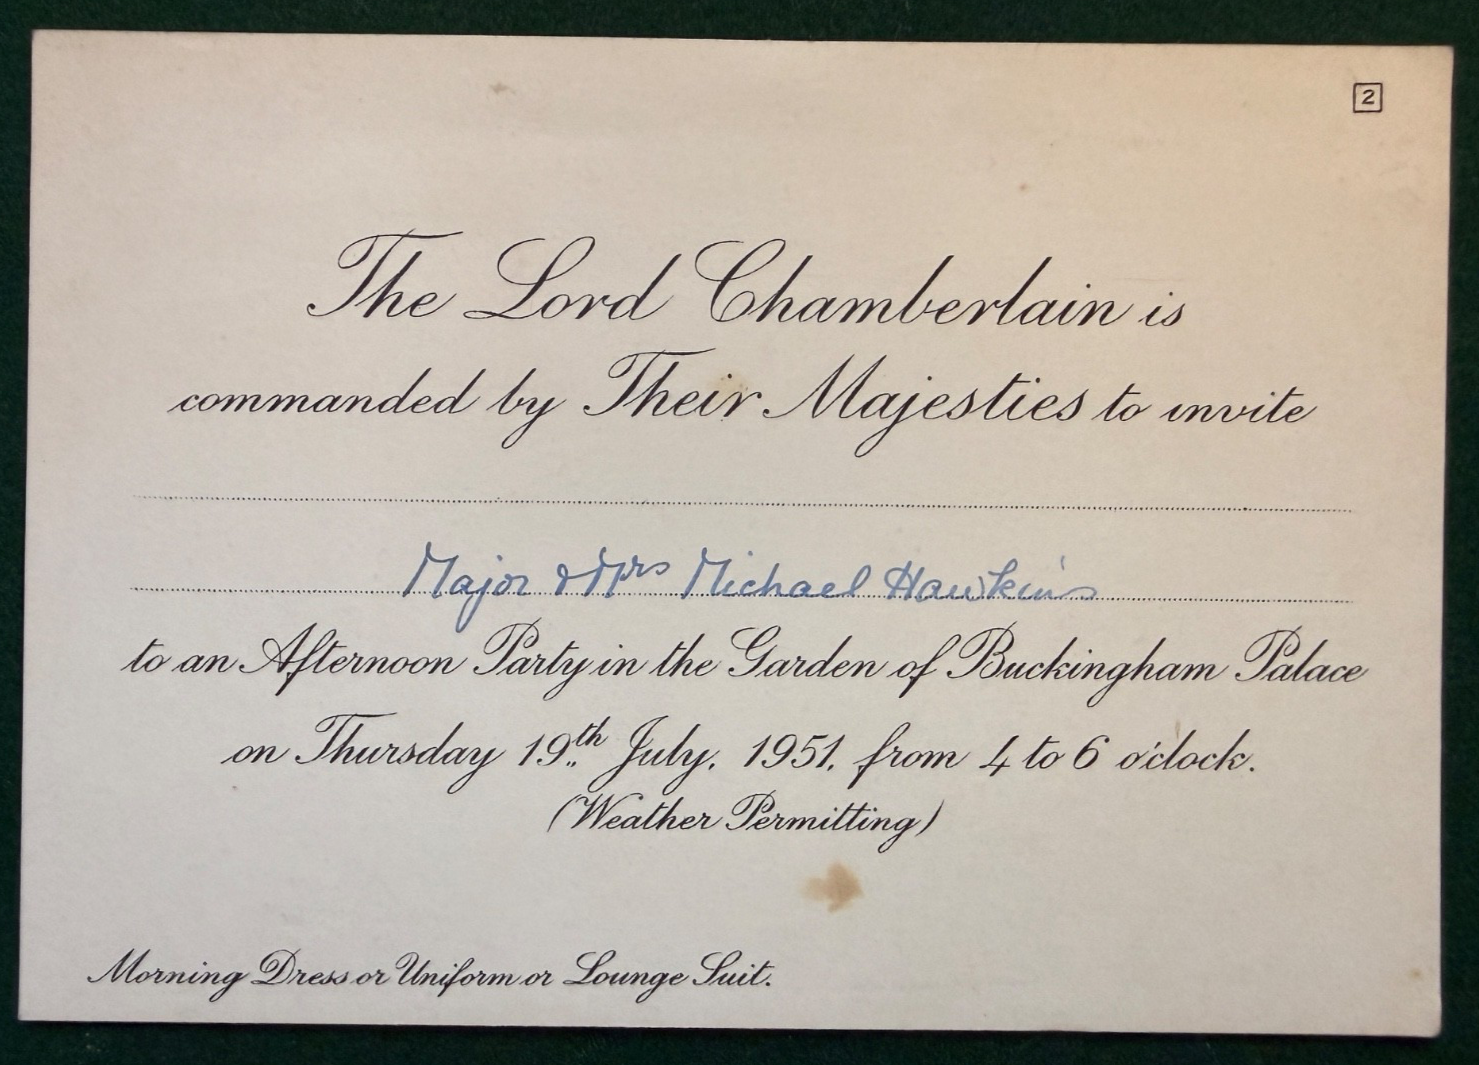 2
The Lord Chamberlain is
commanded by Their Majesties to invite
Major & Mrs Michael Hawkins
to an Afternoon Party in the Garden of Buckingham Palace
on Thursday 19th July, 1951, from 4 to 6 o'clock.
(Weather Permitting)
Morning Dress or Uniform or Lounge Suit.